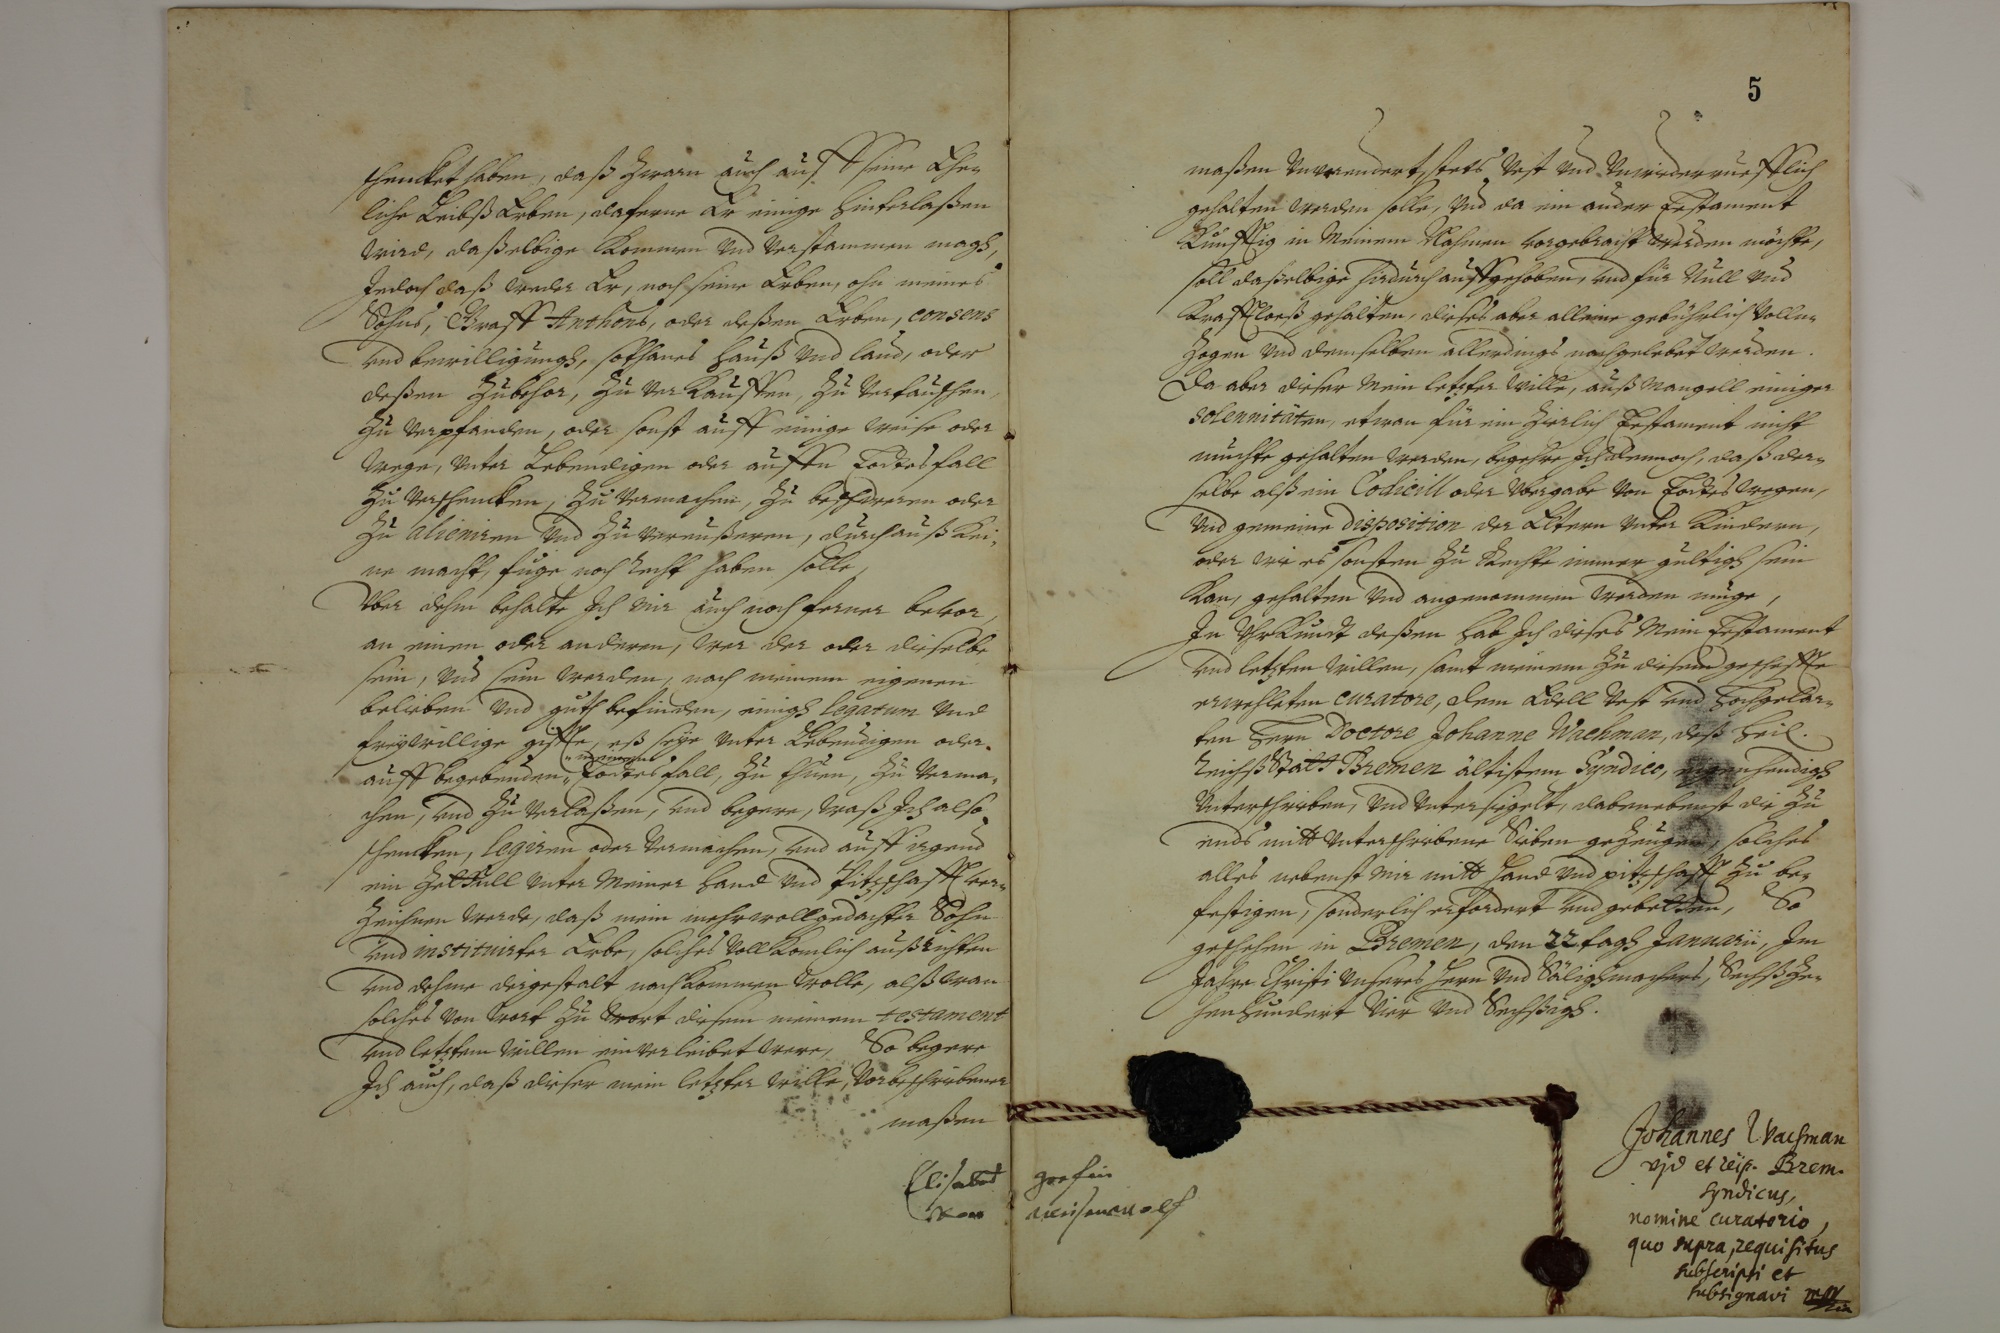 schencket haben, daß zwarn auch auf seine Ehe-
liche Leibß Erben, daferne Er einige hinterlaßen
wird, daßelbige kommen vnd verstammen magh,
Jedoch daß weder Er, noch seine Erben, ohn meines
Sohns, Graff Anthons, oder deßen Erben, consens
vnd bewilligungh, sothanes hauß vnd land, oder
deßen Zubehor, zu verkauffen, zu vertauschen,
zu verpfanden, oder sonst auff einige weise oder
wege, vnter Lebendigen oder auffn Todtesfall
zu verschencken, zu vermachen, zu beschweren oder
zu alieniren vnd zu vereußeren, durchauß kei-
ne macht, fuge noch recht haben solle,
Vber dehm behalte Jch mir auch noch ferner bevor,
an einen oder anderen, wer der oder dieselbe
sein, vnd sein werden, nach meinem eigenen
belieben vnd guth befinden, einigh legatum vnd
freywillige giffte, eß seye vnter Lebendigen oder
auff begebenden meinen Todtesfall, zu thuen, zu verma-
chen, vnd zu verlaßen, vnd begere, waß Jch also
schencken, legiren oder vermachen, vnd auff irgend
ein Zettull vnter meiner hand vnd Pitzschafft ver-
zeichnen werde, daß mein mehrwollgedachter Sohn
vnd instituirter Erbe, solches vollkomlich außrichten
vnd dehme dergestalt nachkommen wolle, alß wan
solches von wort zu wort diesem meinem testament
vnd letztem willen einverleibet were, So begere
Jch auch, daß dieser mein letzter wille, vorbeschriebener
maßen
Elisabet grefin
von
5
maßen vnverendert, stets vest vnd vnwiederruefflich
gehalten werden solle, vnd da ein ander Testament
künfftig in meinem Nahmen vorgebracht werden möchte,
soll daßelbige hirdurch auffgehoben, vnd für Null vnd
Krafftloeß gehalten, dieses aber alleine gebührlich volln-
zogen vnd demselben allerdings nachgelebet werden.
Da aber dieser mein letzter wille, auß mangell einiger
solennitäten, etwan für ein zierlich Testament nicht
muchte gehalten werden, begehre Jch dennoch, daß der-
selbe alß ein Codicill oder vbergabe von Todtes wegen,
vnd gemeine disposition der Eltern vnter Kindern,
oder wie es sonsten zu Rechte immer gultigh sein
kan, gehalten vnd angenommen werden muge,
In Vhrkundt deßen hab Jch dieses mein Testament
vnd letzten willen, samt meinem zu diesem geschefte
erwehleten curatore, dem Edell vest vnd hochgelar-
ten Hern Doctore Johanne Wachman, deß heil.
ReichßStatt Bremen ältistem Syndico, eigenhendigh
vnterschrieben, vnd vntersiegelt, dabenebenst die zu
ends mitt vnterschriebene Sieben gezeugen, solches
alles nebenst mir mitt hand vnd pitzschafft zu be-
festigen, sonderlich erfordert vnd gebetten, So
geschehen in Bremen, den 22 tagh Januarii, Im
Jahre Christi vnseres Hern vnd Säligmachers, Sechßze-
henhundert vier vnd Sechßigh.
Johannes Wachman
et reip. Brem.
Syndicus,
nomine curatorio,
quo supra, requisitus
subscripsi et
subsignavi